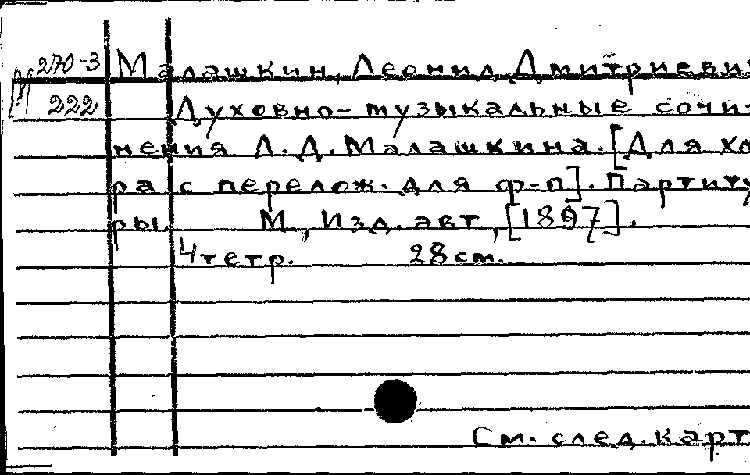 М 270-3 Малашкин, Леонид Дмитриевич
222 Духовно-музыкальные сочи-
нения Л. Д. Малашкина. [Для хо-
ра с перелож. для ф-п]. Партиту-
ры. М., Изд. авт., [1897].
4 тетр. 28 см.
См. след. карт